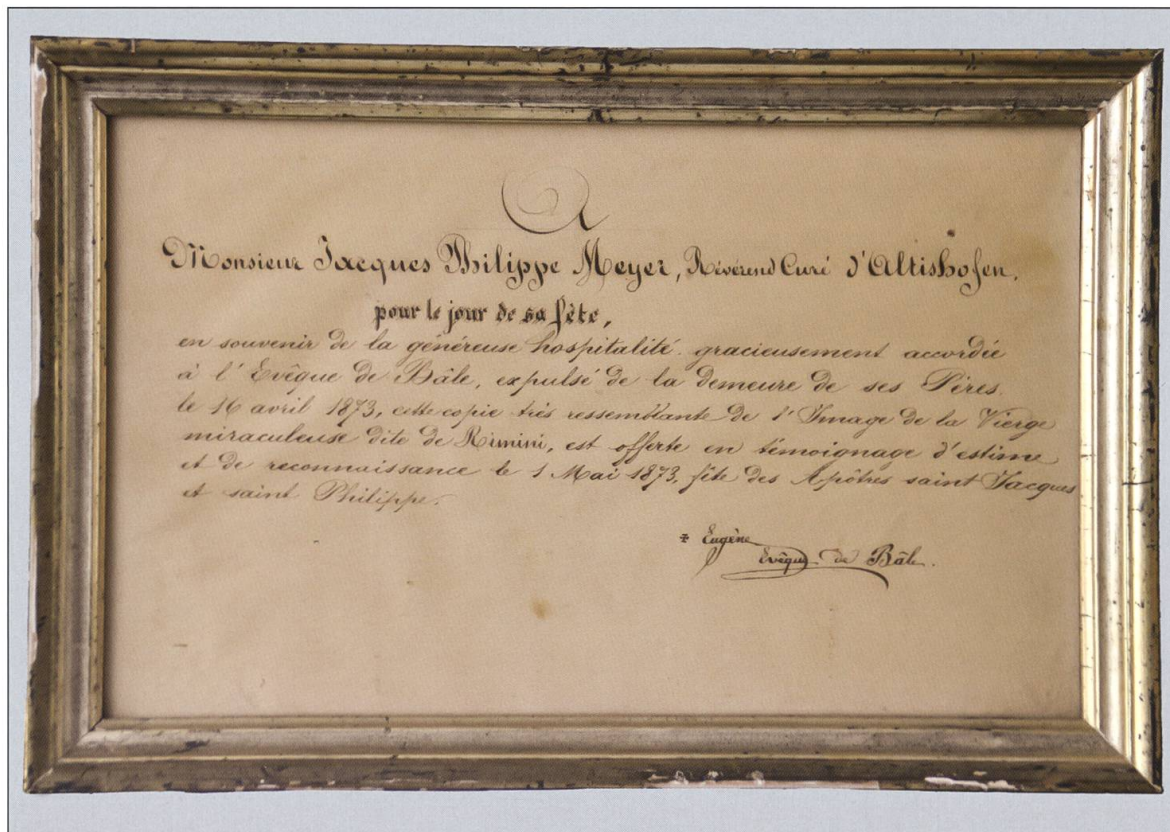 A
Monsieur Jacques Philippe Meyer, Révérend Curé d'Altishofen,
pour le jour de sa fête,
en souvenir de la généreuse hospitalité gracieusement accordée
à l'Evêque de Bâle, expulsé de la demeure de ses Pères
le 16 avril 1873, cette copie très ressemblante de l'Image de la Vierge
miraculeuse dite de Rimini, est offerte en témoignage d'estime
et de reconnaissance le 1 Mai 1873, fête des Apôtres saint Jacques
et saint Philippe.
✠ Eugène
Evêque de Bâle.